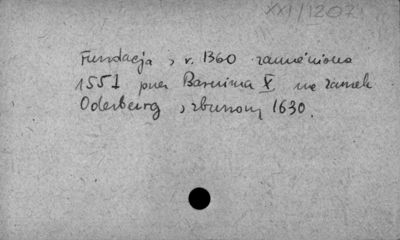 XXI/1207
Fundacja z r. 1360 zamieniona
1551 przez Barnima X na zamek
Oderburg, zburzony 1630.